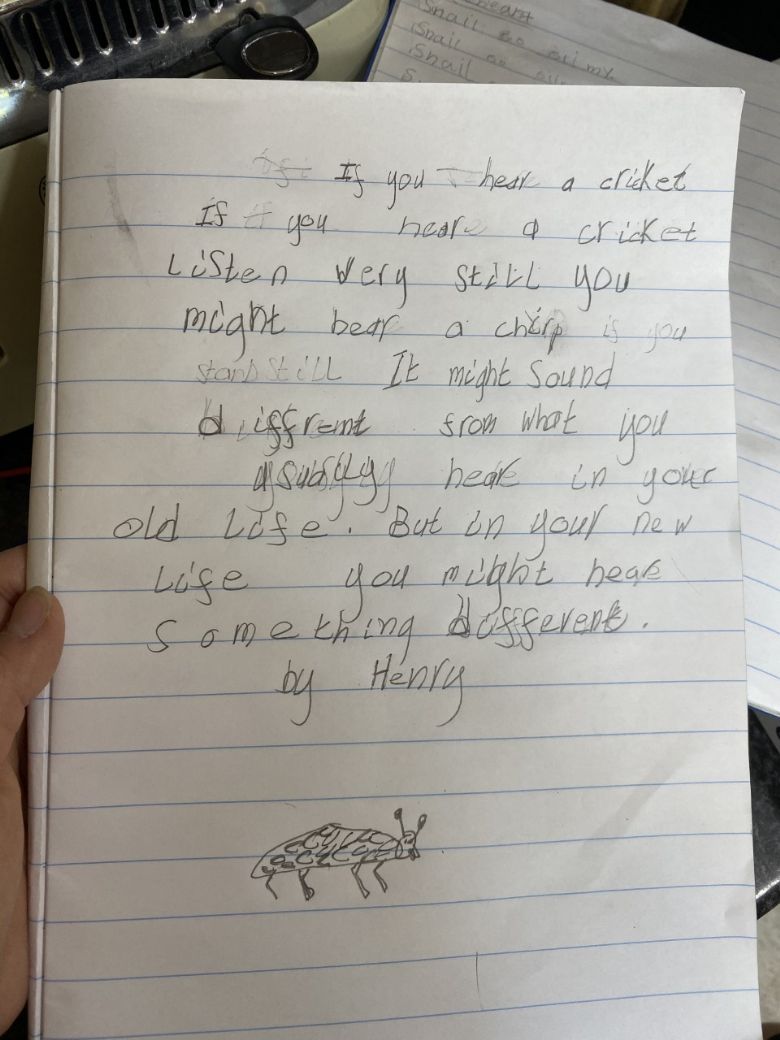 heart
Snail
Snail
Snail
If you hear a cricket
If you hear a cricket
Listen very still you
might hear a chirp if you
stand still It might sound
different from what you
usually hear in your
old life. But in your new
life you might hear
something different.
by Henry